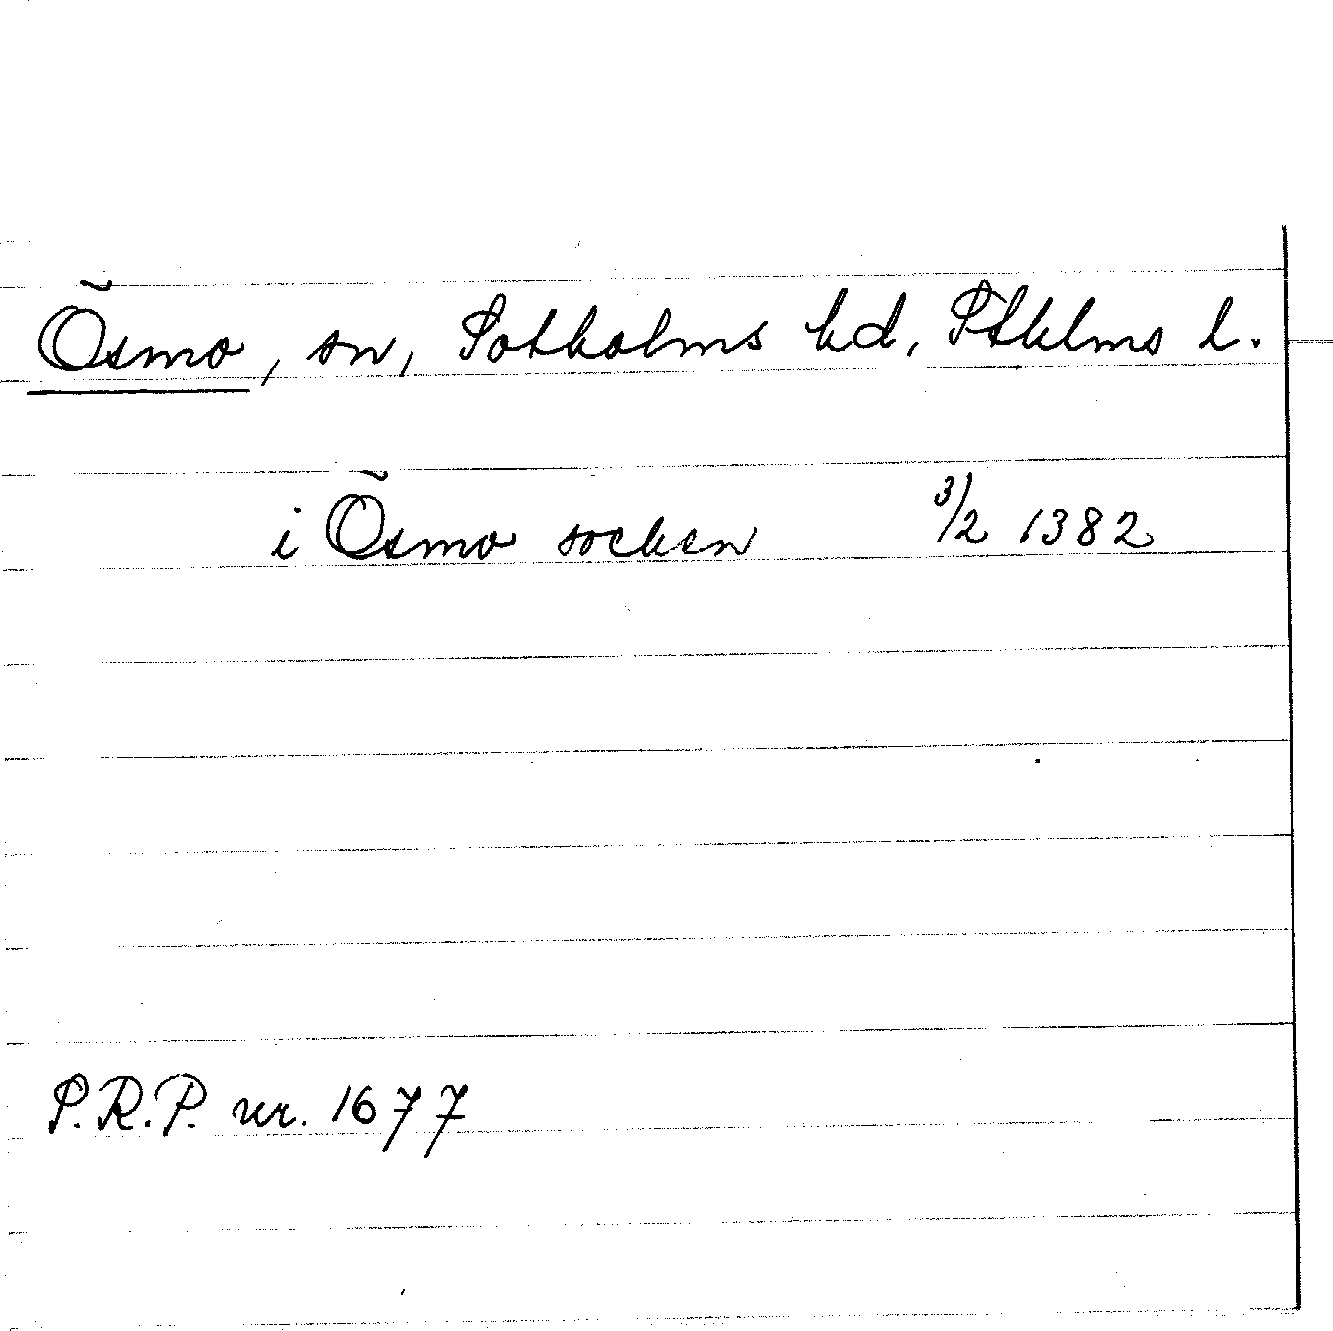 Ösmo, sn, Sotholms hd, Sthlms l.
i Ösmo socken 3/2 1382
S.R.P. nr. 1677